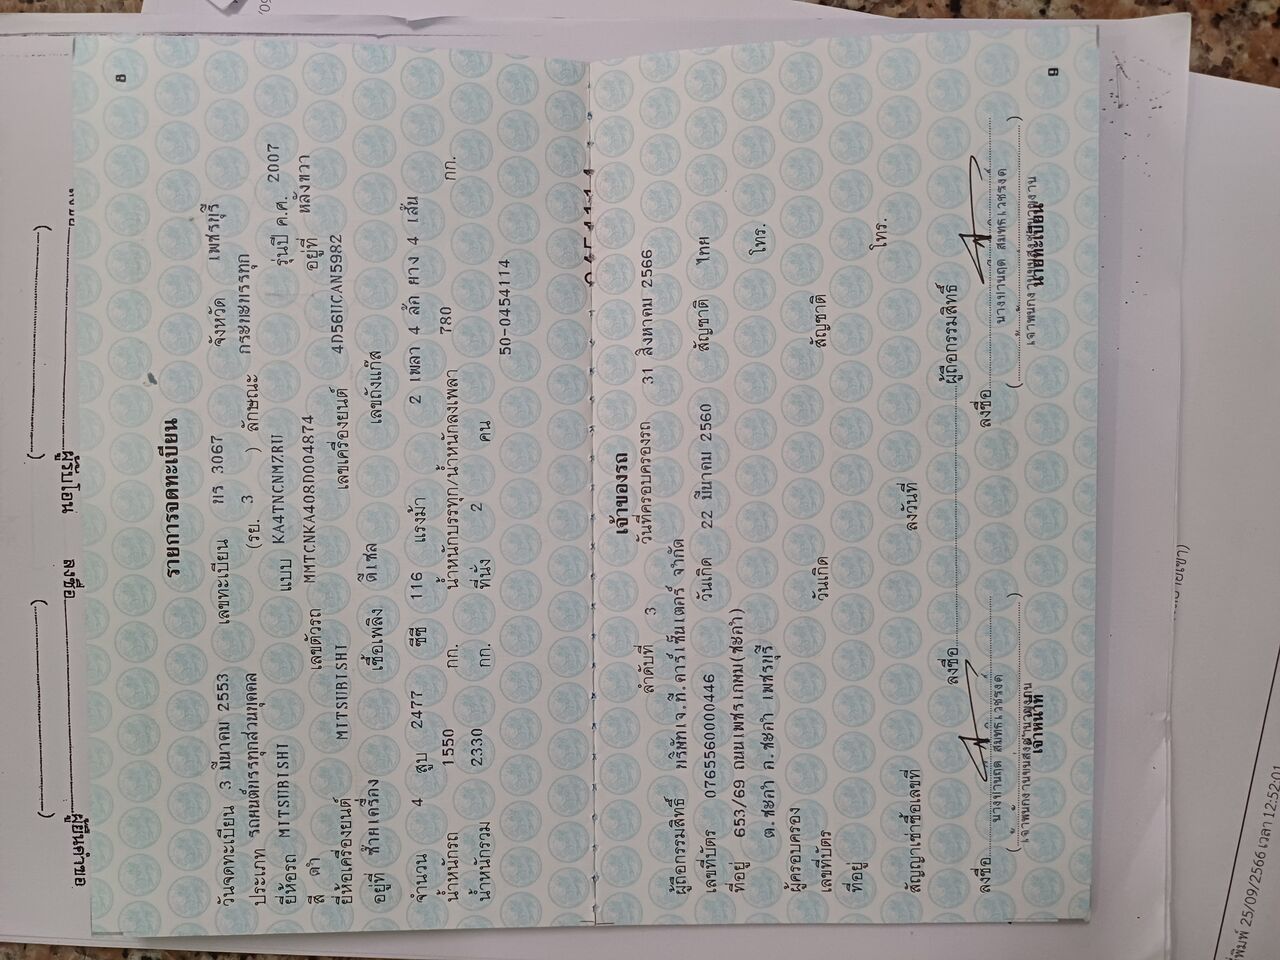 (..............................)
(..............................)
ผู้ยื่นคำขอ
ลงชื่อ
ผู้รับโอน
8
รายการจดทะเบียน
วันจดทะเบียน 3 มีนาคม 2553 เลขทะเบียน บร 3067 จังหวัด เพชรบุรี
ประเภท รถยนต์บรรทุกส่วนบุคคล (รย. 3 ) ลักษณะ กระบะบรรทุก
ยี่ห้อรถ MITSUBISHI แบบ KA4TNCNMZRU รุ่นปี ค.ศ. 2007
สี ดำ เลขตัวรถ MMTCNKA408D004874 อยู่ที่ หลังขวา
ยี่ห้อเครื่องยนต์ MITSUBISHI เลขเครื่องยนต์ 4D56UCAN5982
อยู่ที่ ซ้ายเครื่อง เชื้อเพลิง ดีเซล เลขถังแก๊ส
จำนวน 4 สูบ 2477 ซีซี 116 แรงม้า 2 เพลา 4 ล้อ ยาง 4 เส้น
น้ำหนักรถ 1550 กก. น้ำหนักบรรทุก/น้ำหนักลงเพลา 780 กก.
น้ำหนักรวม 2330 กก. ที่นั่ง 2 คน
50-0454114
เจ้าของรถ
ลำดับที่ 3 วันที่ครอบครองรถ 31 สิงหาคม 2566
ผู้ถือกรรมสิทธิ์ บริษัทเจ.ที.คาร์เซ็นเตอร์ จำกัด
เลขที่บัตร 0765560000446 วันเกิด 22 มีนาคม 2560 สัญชาติ ไทย
ที่อยู่ 653/69 ถนนเพชรเกษม(ชะอำ) โทร.
ต.ชะอำ อ.ชะอำ เพชรบุรี
ผู้ครอบครอง
เลขที่บัตร วันเกิด สัญชาติ
ที่อยู่ โทร.
สัญญาเช่าซื้อเลขที่ ลงวันที่
ลงชื่อ ผู้ถือกรรมสิทธิ์
ลงชื่อ ลงชื่อ
เจ้าหน้าที่ นายทะเบียน
9
พิมพ์ 25/09/2566 เวลา 12:52:01